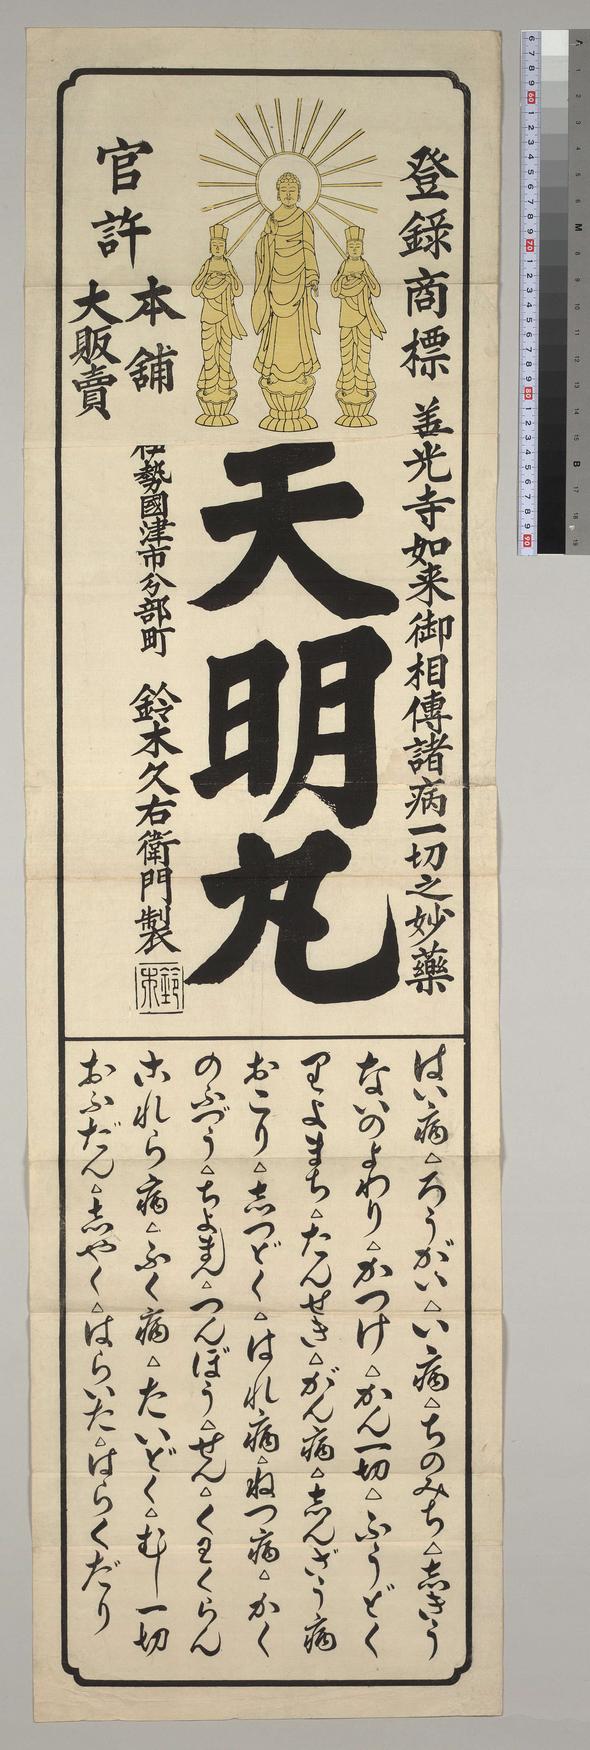 登錄商標
善光寺如来御相傳諸病一切之妙藥
天明丸
官許
本舗
大販賣
伊勢國津市分部町 鈴木久右衛門製
鈴木
はい病△ろうがい△い病△ちのみち△志きう
ないのよわり△かつけ△かん一切△ふうどく
りよまち△たんせき△がん病△志んざう病
おこり△志つどく△はれ病△ねつ病△かく
のふづう△ちよまん△つんぼう△せん△くわくらん
これら病△ふく病△たいどく△むし一切
おふだん△志やく△はらいた△はらくだり